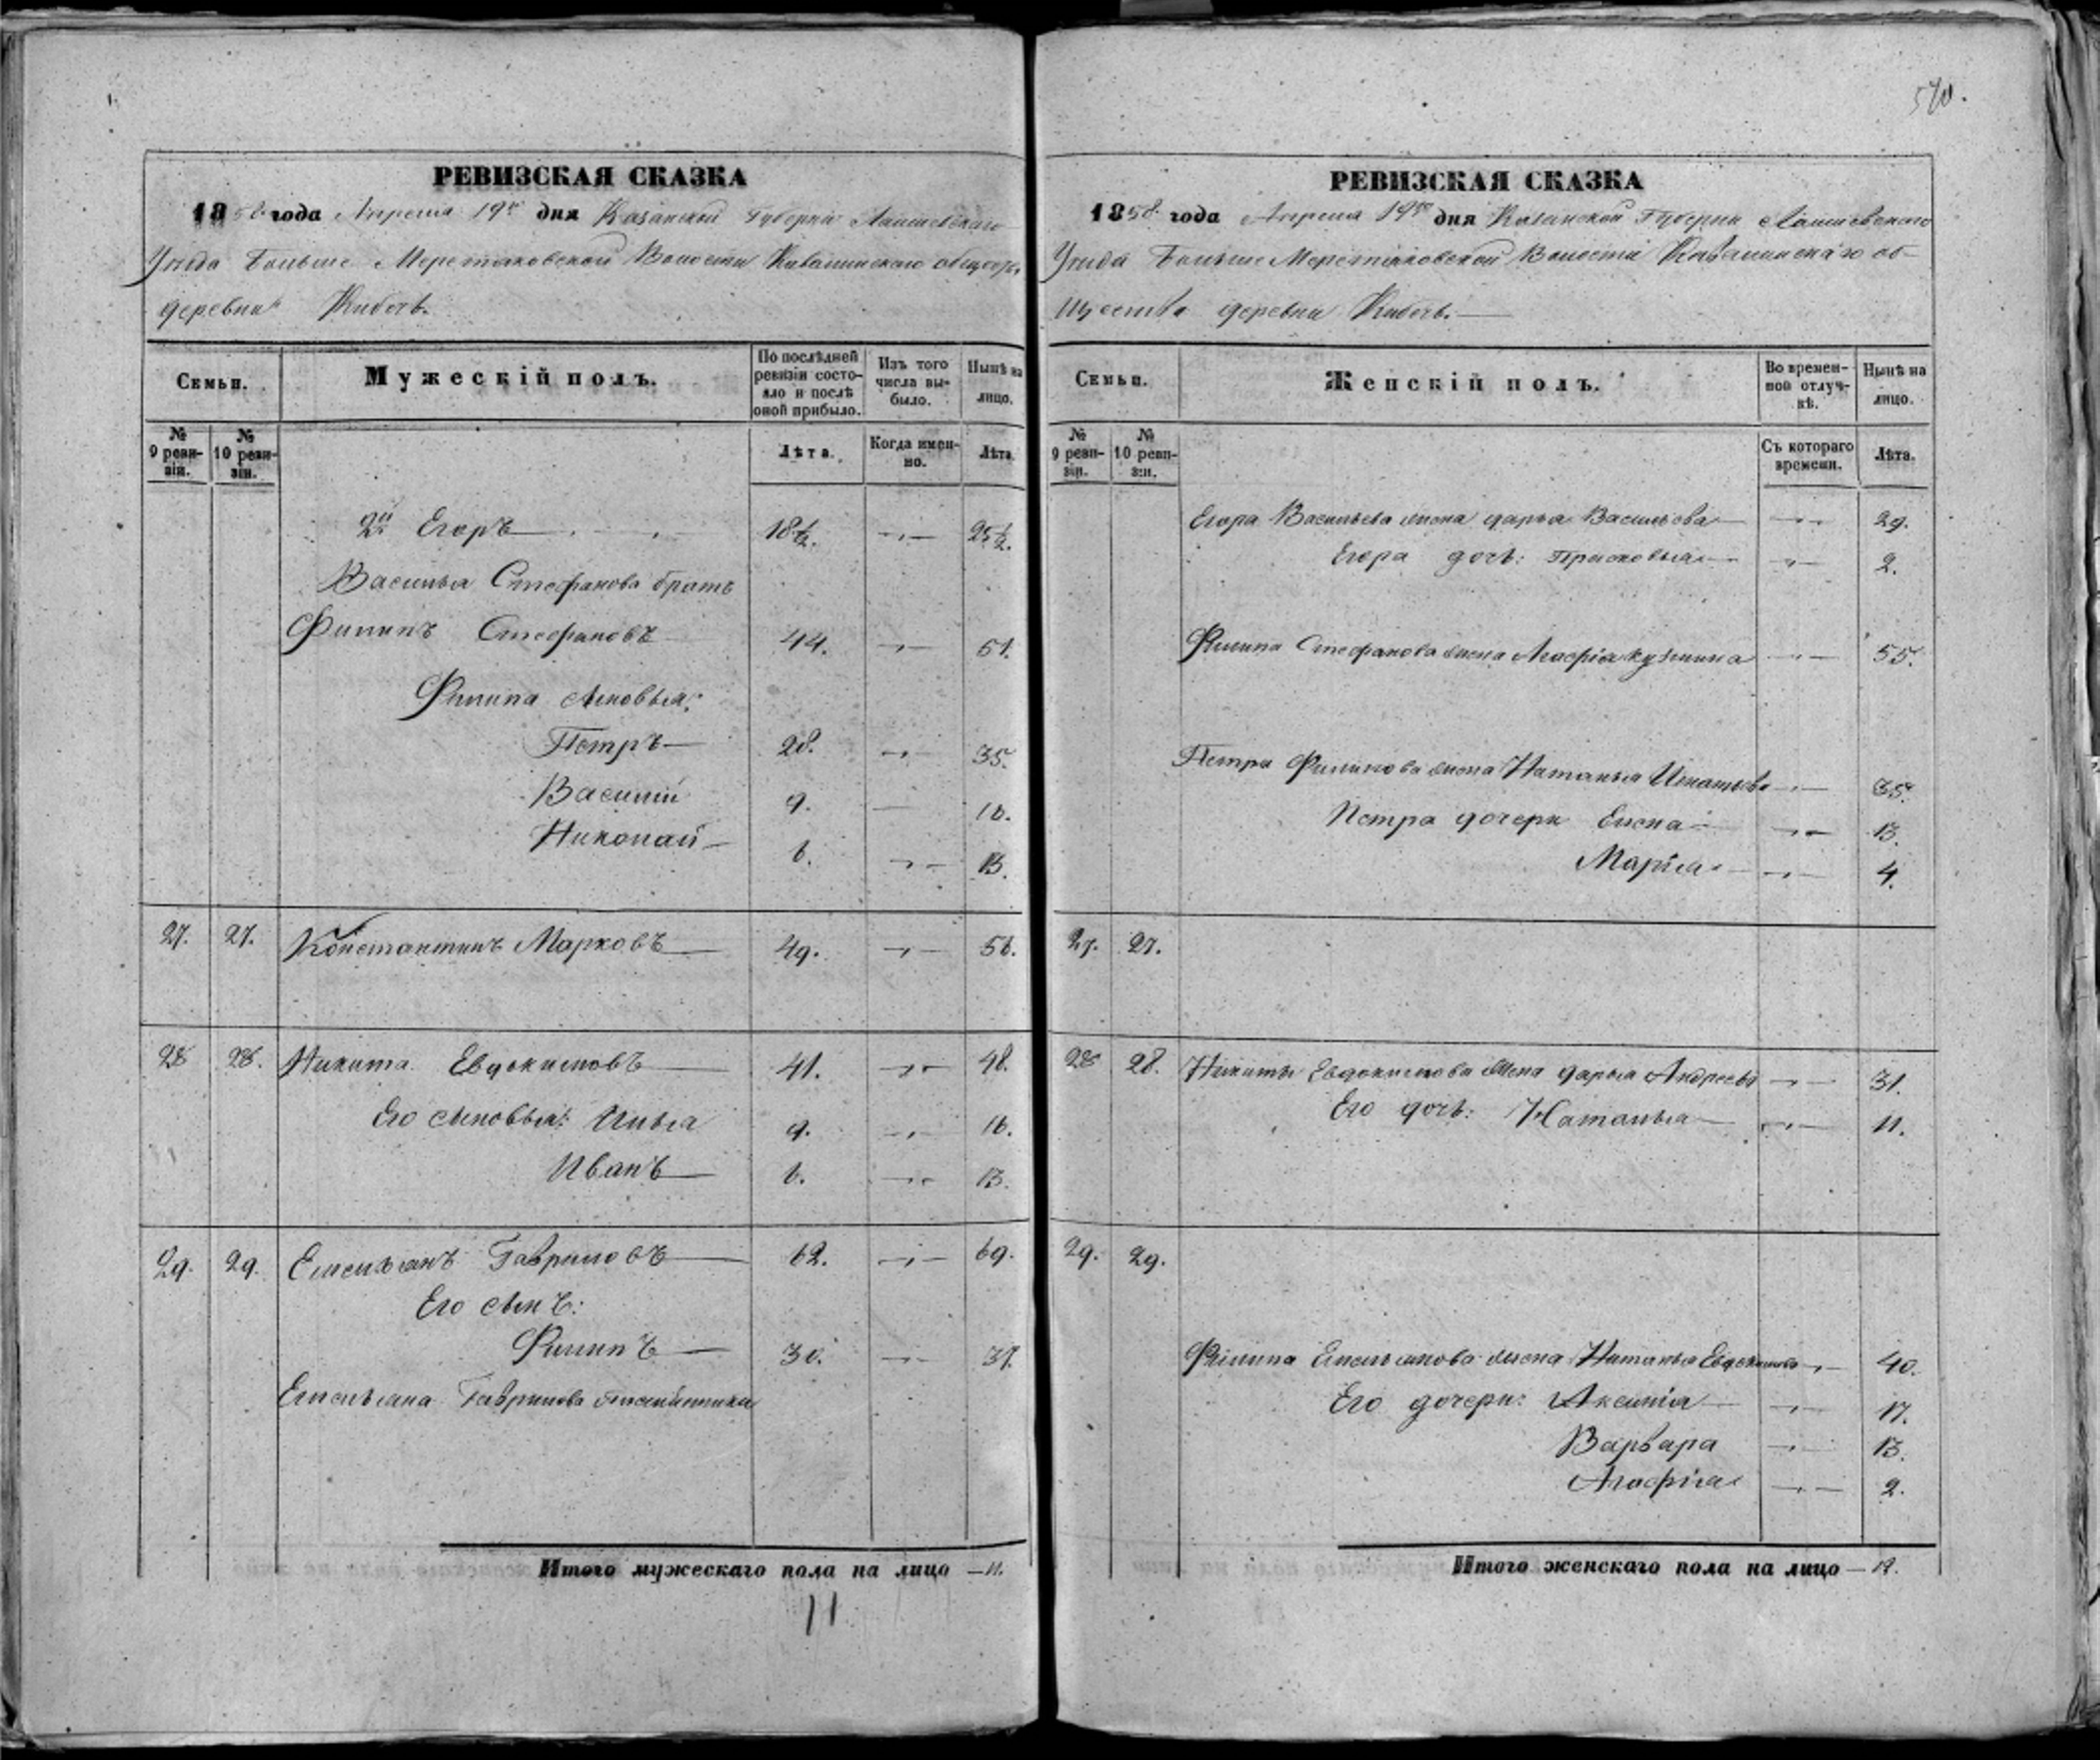 570.
РЕВИЗСКАЯ СКАЗКА
1858 года Апреля 19го дня Казанской Губерніи Лаишевскаго
Уѣзда Больше Меретяковской Волости Кабалинскаго общ
деревни Кибечь.
Семьи.
Мужескій полъ.
По послѣдней ревизіи состояло и послѣ оной прибыло.
Изъ того числа выбыло.
Нынѣ на лицо.
№ 9 ревизіи.
№ 10 ревизіи.
Лѣта.
Когда именно.
Лѣта
2й Егоръ 18½. 25½.
Василья Стефанова братъ
Филипъ Стефановъ 44. 51.
Филипа сыновья:
Петръ 28. 35.
Василій 9. 16.
Николай 6. 13.
27. 27. Константинъ Марковъ 49. 56.
28 28. Никита Евдокимовъ 41. 48.
Его сыновья: Илья 9. 16.
Иванъ 6. 13.
29. 29. Емельянъ Гавриловъ 62. 69.
Его сынъ:
Филипъ 30. 37.
Емельяна Гаврилова племянники
Итого мужескаго пола на лицо — 11.
11
РЕВИЗСКАЯ СКАЗКА
1858 года Апреля 19го дня Казанской Губерніи Лаишевскаго
Уѣзда Больше Меретяковской Волости Кабалинскаго об-
щества деревни Кибечь.
Семьи.
Женскій полъ.
Во временной отлучкѣ.
Нынѣ на лицо.
№ 9 ревизіи.
№ 10 ревизіи.
Съ котораго времени.
Лѣта.
Егора Васильева жена дарья Васильева 29.
Егора дочь: Прасковья 2.
Филипа Стефанова жена Агафіа Кузмина 55.
Петра Филипова жена Наталья Игнатьева 35.
Петра дочери Елена 13.
Марья 4.
27. 27.
28 28. Никиты Евдокимова жена дарья Андреева 31.
Его дочь: Наталья 11.
29. 29.
Филипа Емельянова жена Наталья Евдокимова 40.
Его дочери: Аксинія 17.
Варвара 13.
Агафія 2.
Итого женскаго пола на лицо — 12.